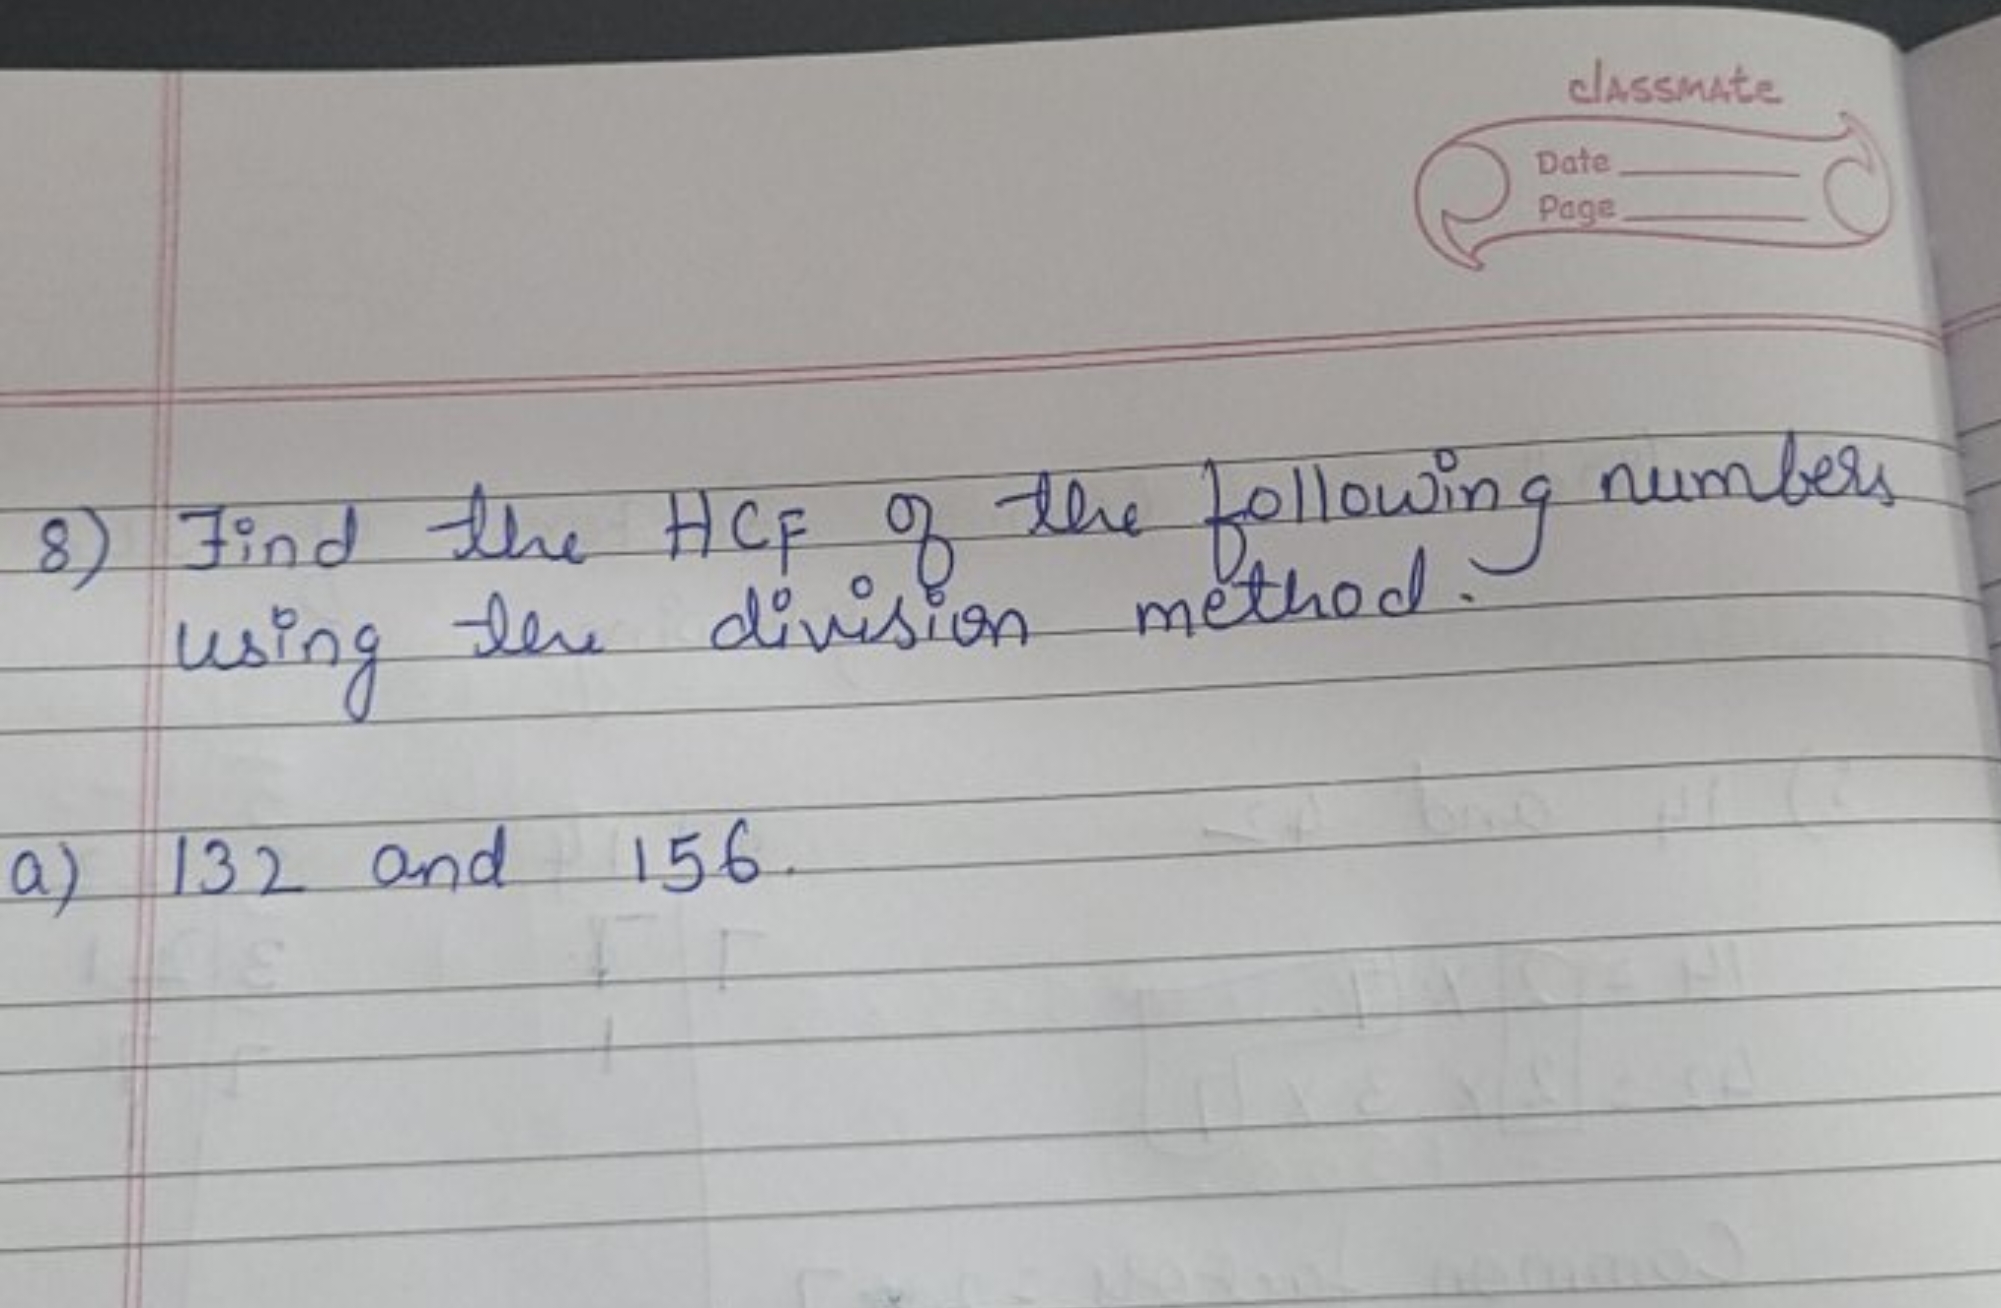 classmate
Date
Page
8) Find the HCF of the following numbers
using the division method.
a) 132 and 156.